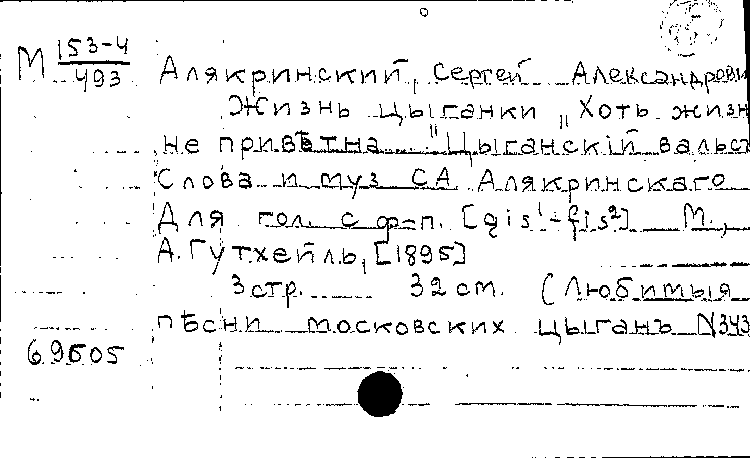 М 153-4
493
Алякринский, Сергей Александрови
Жизнь цыганки „Хоть жизн
не привѣтна..." Цыганскій вальс
Слова и муз СА Алякринскаго
Для гол. с ф-п. [gis¹-fis²] М.,
А. Гутхейль, [1895]
3 стр. 32 см. (Любимыя
пѣсни московских цыганъ N343
69505